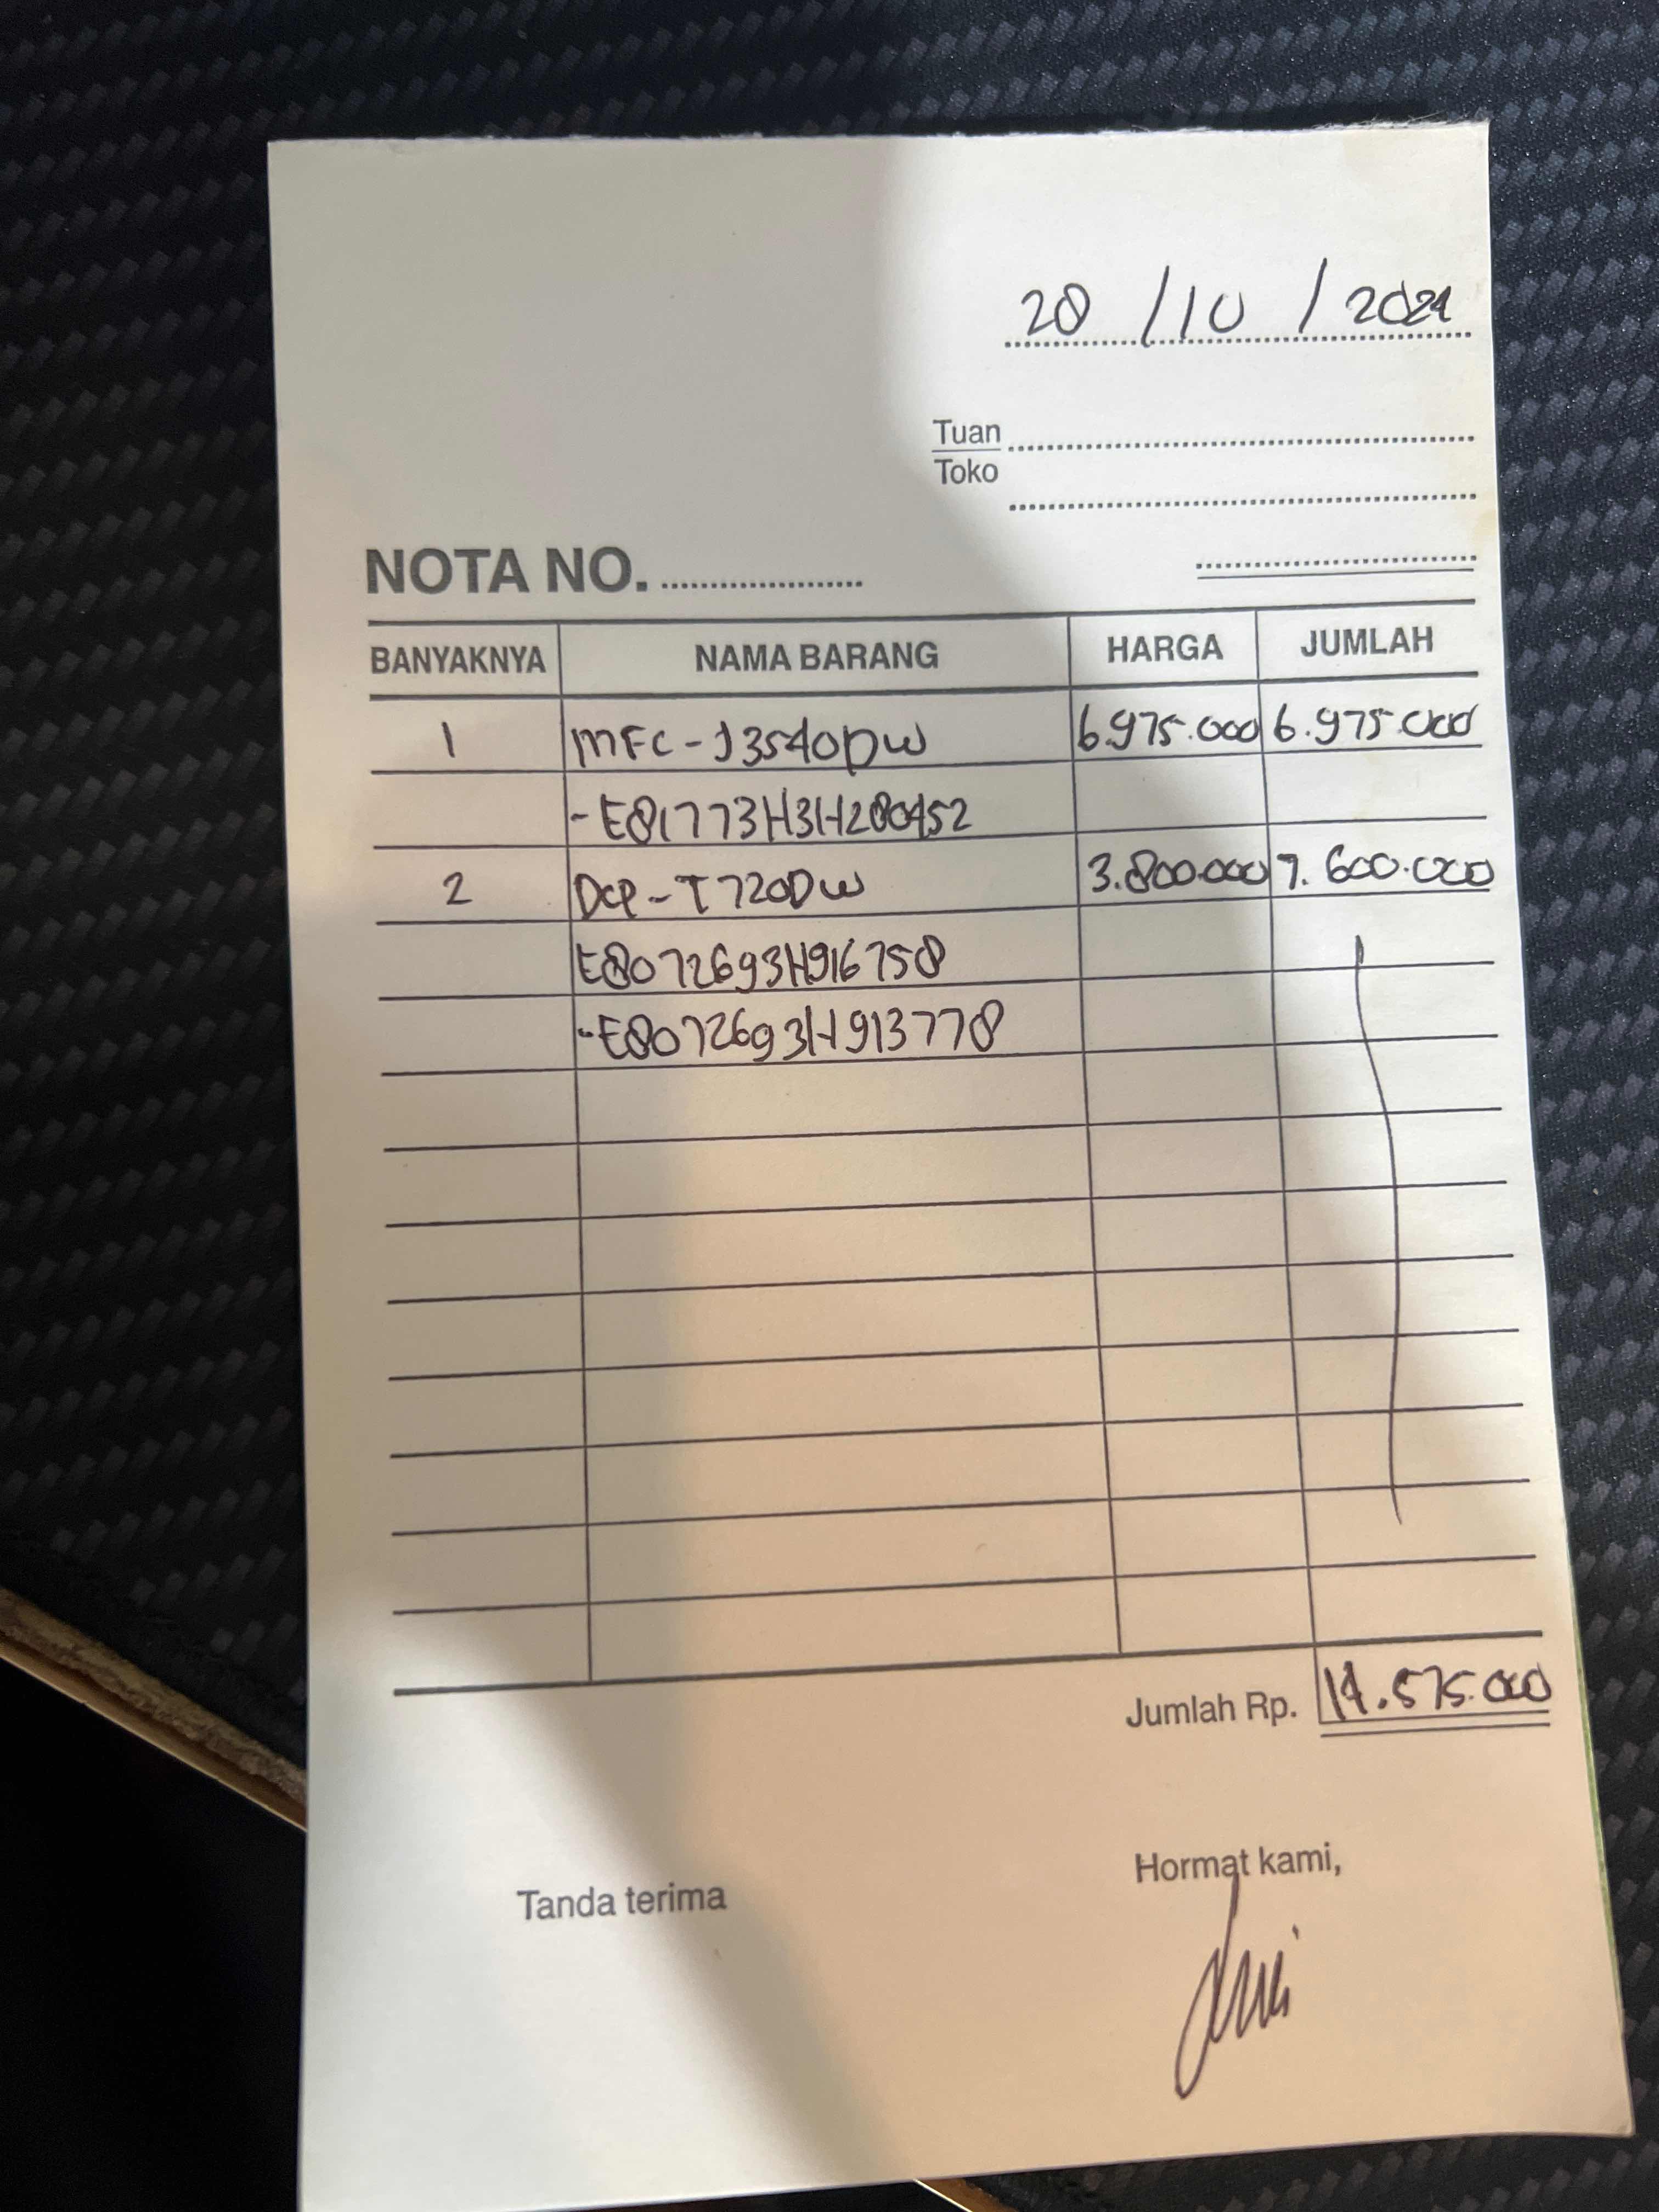 28 / 10 / 2024
Tuan
Toko
NOTA NO.
BANYAKNYA NAMA BARANG HARGA JUMLAH
1 MFC-J3540DW 6.975.000 6.975.000
- E81773H3H280452
2 DCP-T720DW 3.800.000 7.600.000
E80726G3H916758
-E80726G3H913778
Jumlah Rp. 14.575.000
Tanda terima
Hormat kami,